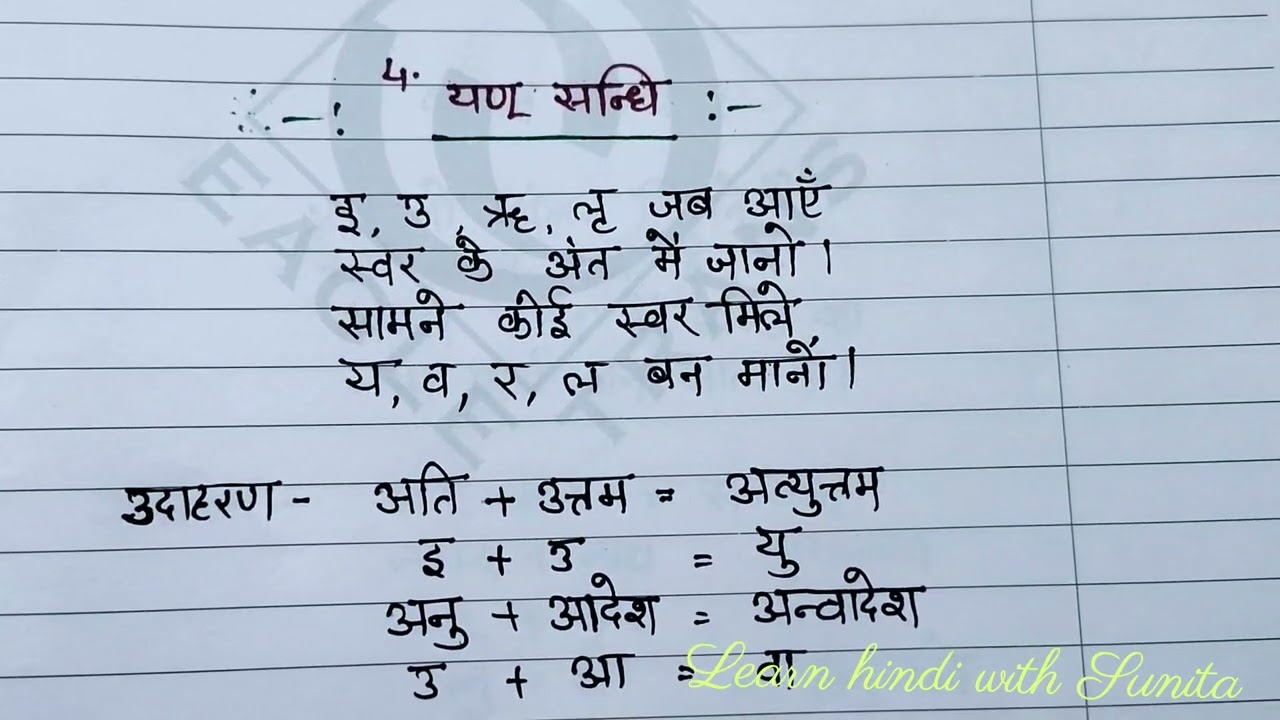 4. यण् सन्धि :-
इ, उ, ऋ, लृ जब आएँ
स्वर के अंत में जानो।
सामने कोई स्वर मिले
य, व, र, ल बन मानों।
उदाहरण - अति + उत्तम = अत्युत्तम
इ + उ = यु
अनु + आदेश = अन्वादेश
उ + आ = वा
Learn hindi with Sunita